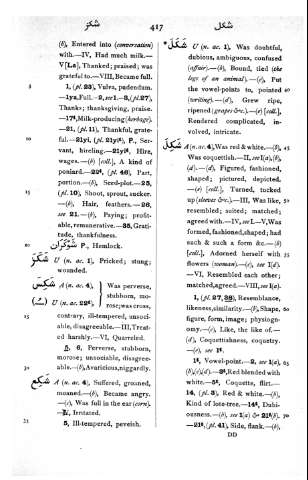 شكز
417
شكل
(b), Entered into (conversation)
with.—IV, Had much milk.—
V[La], Thanked; praised; was
grateful to.—VIII, Became full.
5 1, (pl. 23), Vulva, pudendum.
—1ya, Full.—2, see 1.—3, (pl. 27),
Thanks; thanksgiving, praise.
—17ª, Milk-producing (herbage).
—21, (pl. 11), Thankful, grate-
10 ful.—21yi, (pl. 21yiª), P., Ser-
vant, hireling.—21yiª, Hire,
wages.—(b) [coll.], A kind of
poniard.—29ª, (pl. 46), Part,
portion.—(b), Seed-plot.—25,
15 (pl. 10), Shoot, sprout, sucker.
—(b), Hair, feathers.—26,
see 21.—(b), Paying; profit-
able, remunerative.—35, Grati-
tude, thankfulness.
20 شوكران P., Hemlock.
شكز U (n. ac. 1), Pricked; stung;
wounded.
شكس A (n. ac. 4), Was perverse,
stubborn, mo-
U (n. ac. 22ª), rose; was cross,
25 contrary, ill-tempered, unsoci-
able, disagreeable.—III, Treat-
ed harshly.—VI, Quarreled.
5, 6, Perverse, stubborn,
morose; unsociable, disagree-
30 able.—(b), Avaricious, niggardly.
شكع A (n. ac. 4), Suffered, groaned,
moaned.—(b), Became angry.
—(c), Was full in the ear (corn).
—IV, Irritated.
35 5, Ill-tempered, peevish.
شكل U (n. ac. 1), Was doubtful,
dubious, ambiguous, confused
(affair).—(b), Bound, tied (the
legs of an animal).—(c), Put
the vowel-points to, pointed 40
(writing).—(d), Grew ripe,
ripened (grapes &c.).—(e) [coll.],
Rendered complicated, in-
volved, intricate.
شكل A (n. ac. 4), Was red & white.—(b), 45
Was coquettish.—II, see I(a), (b),
(d).—(d), Figured, fashioned,
shaped; pictured, depicted.
—(e) [coll.], Turned, tucked
up (sleeves &c.).—III, Was like, 50
resembled; suited; matched;
agreed with.—IV, see I.—V, Was
formed, fashioned, shaped; had
such & such a form &c.—(b)
[coll.], Adorned herself with 55
flowers (woman).—(c), see I(d).
—VI, Resembled each other;
matched, agreed.—VIII, see I(a).
1, (pl. 27, 38), Resemblance,
likeness, similarity.—(b), Shape, 60
figure, form, image; physiogn-
omy.—(c), Like, the like of.—
(d), Coquettishness, coquetry.
—(e), see 1ª.
1ª, Vowel-point.—2, see 1(a), 65
(b), (c), (d).—3ª, Red blended with
white.—5ª, Coquette, flirt.—
14, (pl. 3), Red & white.—(b),
Kind of lote-tree.—14ª, Dubi-
ousness.—(b), see 1(a) & 21ª(b). 70
—21ª, (pl. 41), Side, flank.—(b),
DD